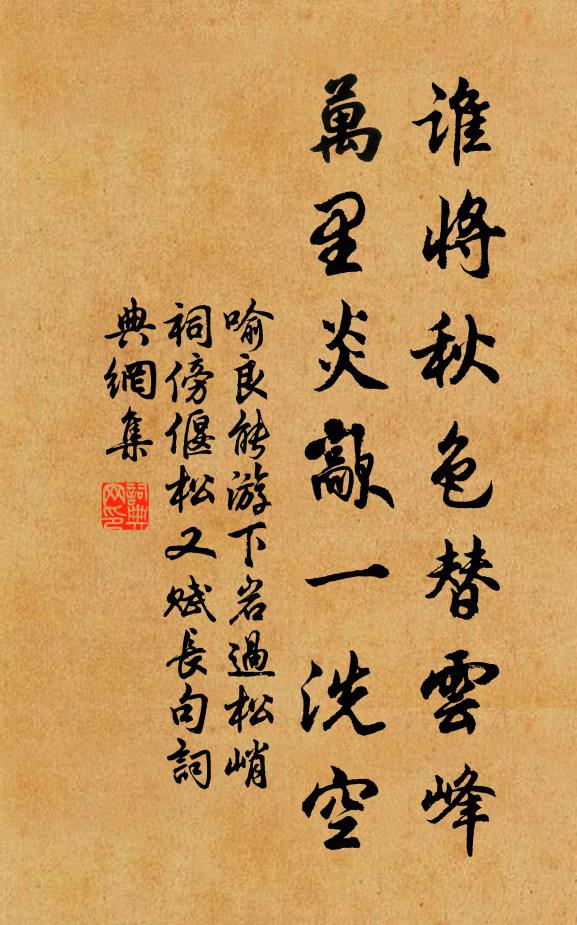 誰將秋色替雲峰
萬里炎歊一洗空
喻良能游下岩過松峭
祠傍偃松又賦長句詞
典網集
詞典
網印